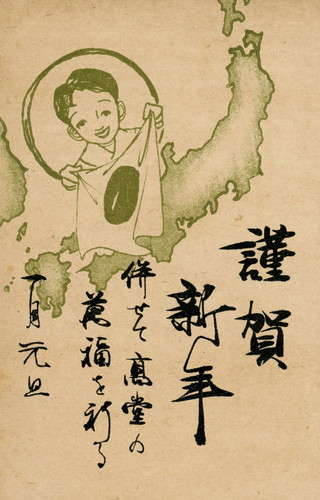 謹賀
新年
併せて高堂の
萬福を祈る
一月元旦